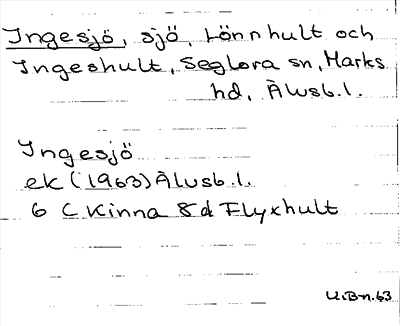 Ingesjö, sjö, Lönnhult och
Ingeshult, Seglora sn, Marks
hd, Älvsb.l.
Ingesjö
ek (1963) Älvsb.l.
6 C Kinna 8d Flyxhult
U.Bn.63